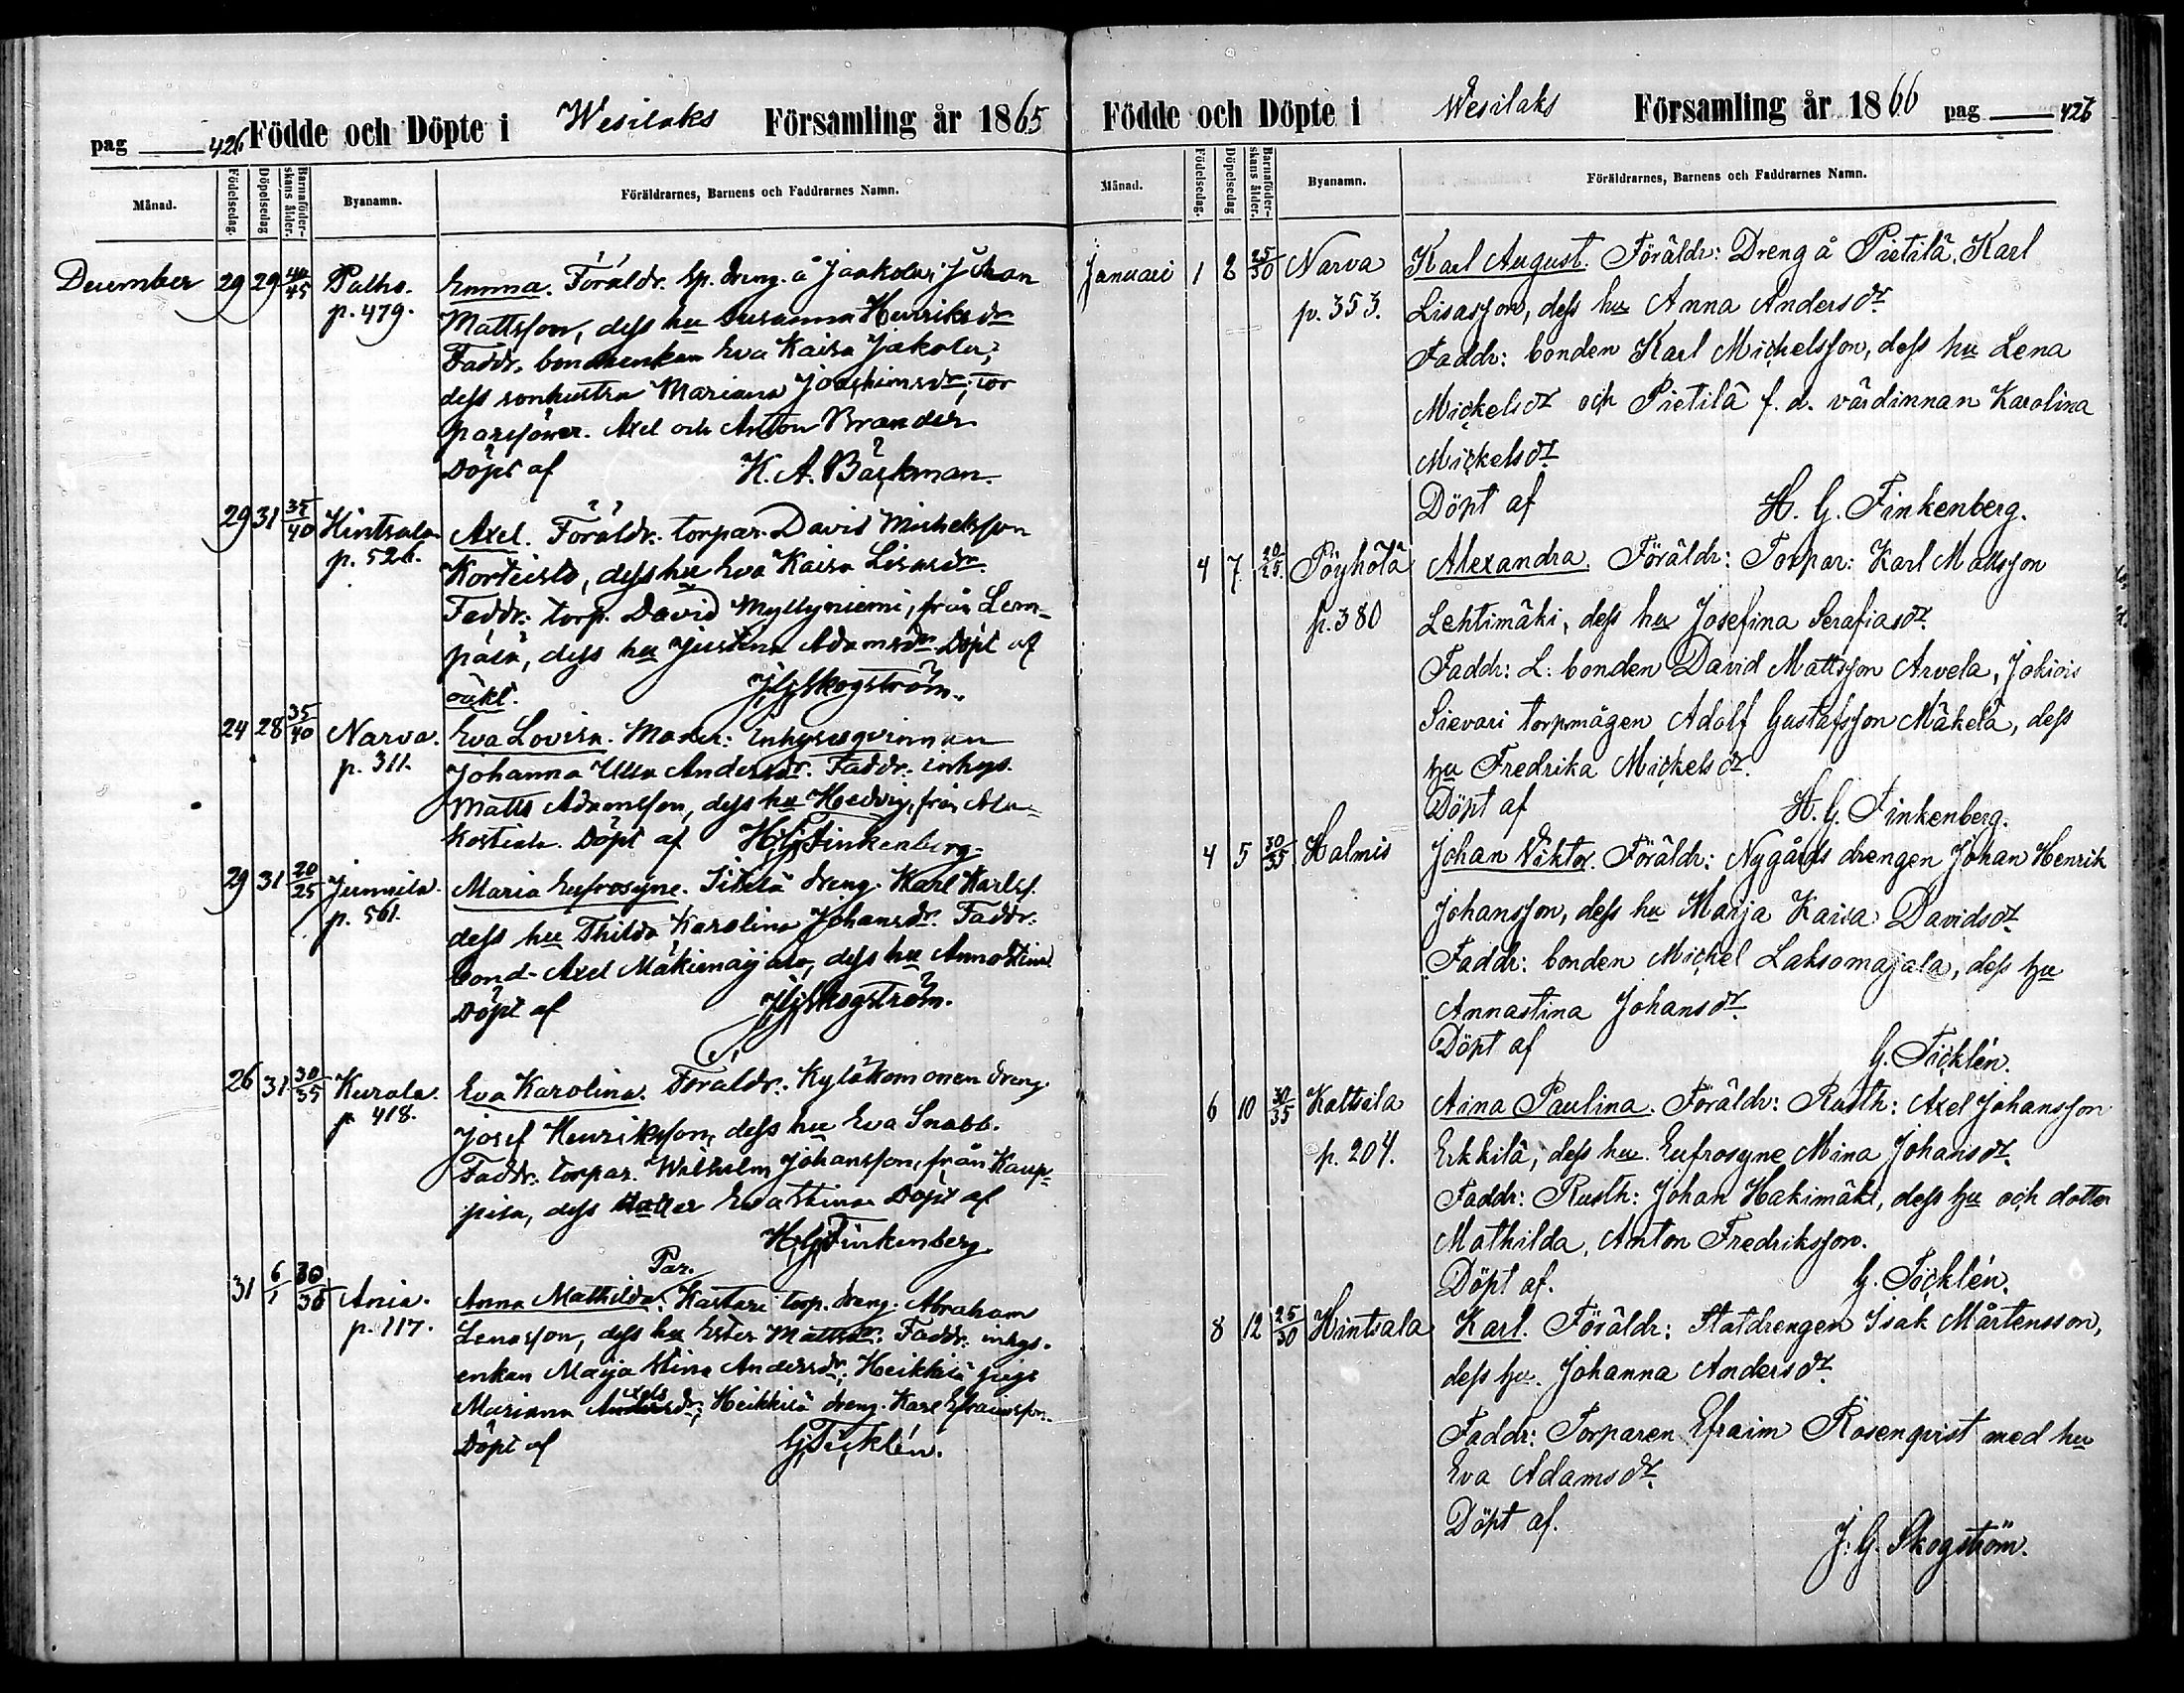 pag 426 Födde och Döpte i Wesilaks Församling år 1865
Månad. Födelsedag. Döpelsedag Barnaföderskans ålder. Byanamn. Föräldrarnes, Barnens och Faddrarnes Namn.
December 29 29 40/45 Palho. Emma. Föräldr. Sp. dreng. å Jaakolan Johan
p. 479. Mattsson, dess hu Susanna Henriksdr
Faddr. bondenkan Eva Kaisa Jakola,
dess sonhustru Mariana Joachimsdr, tor
parsöner. Axel och Anton Brander
Döpt af K. A. Bäckman.
29 31 35/40 Hintsala Axel. Föräldr. torpar. David Michelsson
p. 526. Korteisto, dess hu Eva Kaisa Lisasdr.
Faddr: torp. David Myllyniemi, från Lem-
päälä, dess hu Justina Adamsdr. Döpt af
oäkt. J G Skogström.
24 28 35/40 Narva. Eva Lovisa. Moder: Inhyseqvinnan
p. 311. Johanna Ulla Andersdr. Faddr. inhys.
Matts Adamsson, dess hu Hedvig, från Ala-
Kostiala. Döpt af H G Finkenberg.
29 31 20/25 Junnila. Maria Eufrosyne. Sikilä dreng. Karl Karlss.
p. 561. dess hu Thilda Karolina Johansdr. Faddr.
bond. Axel Mäkienaijala, dess hu Annastina
Döpt af J G Skogström.
26 31 30/35 Kurala. Eva Karolina. Föräldr. Kyläkomonen dreng.
p. 418. Josef Henriksson, dess hu Eva Snabb.
Faddr: torpar. Wilhelm Johansson, från Kaup-
pila, dess Evastina Döpt af
H G Finkenberg.
Par.
31 6/1 30/35 Ania. Anna Mathilda. Kastari torp. dreng. Abraham
p. 117. Lenasson, dess hu Ester Mattsdr. Faddr. inhys.
enkan Maija Stina Andersdr; Heikkilä piga
Mariana Axelsdr; Heikkilä dreng. Karl Efraimsson.
Döpt af G Täcklén.
Födde och Döpte i Wesilaks Församling år 1866 pag 427
Månad. Födelsedag. Döpelsedag Barnaföderskans ålder. Byanamn. Föräldrarnes, Barnens och Faddrarnes Namn.
Januari 1 2 25/30 Narva Karl August. Föräldr: Dreng å Pietilä, Karl
p. 353. Lisasson, dess hu Anna Andersdr.
Faddr: bonden Karl Michelsson, dess hu Lena
Mickelsdr och Pietilä f. d. värdinnan Karolina
Mickelsdr.
Döpt af H. G. Finkenberg.
4 7 20/25 Pöyhölä Alexandra. Föräldr: Torpar: Karl Mattsson
p. 380 Lehtimäki, dess hu Josefina Serafiasdr.
Faddr: L: bonden David Mattsson Arvela, Jokiois
Sievari torpmågen Adolf Gustafsson Mäkelä, dess
hu Fredrika Mickelsdr.
Döpt af H. G. Finkenberg.
4 5 30/35 Halmis Johan Viktor. Föräldr: Nygårds drengen Johan Henrik
Johansson, dess hu Maija Kaisa Davidsdr.
Faddr: bonden Mickel Laksomajala, dess hu
Annastina Johansdr.
Döpt af G. Täcklén.
6 10 30/35 Kaltsila Aina Paulina. Föräldr: Rusth: Axel Johansson
p. 204. Erkkilä, dess hu Eufrosyne Mina Johansdr.
Faddr: Rusth: Johan Hakimäki, dess hu och dotter
Mathilda, Anton Fredriksson.
Döpt af. G. Täcklén.
8 12 25/30 Hintsala Karl. Föräldr: Statdrengen Isak Mårtensson,
dess hu. Johanna Andersdr.
Faddr: Torparen Efraim Rosenqvist med hu
Eva Adamsdr.
Döpt af. J. G. Skogström.